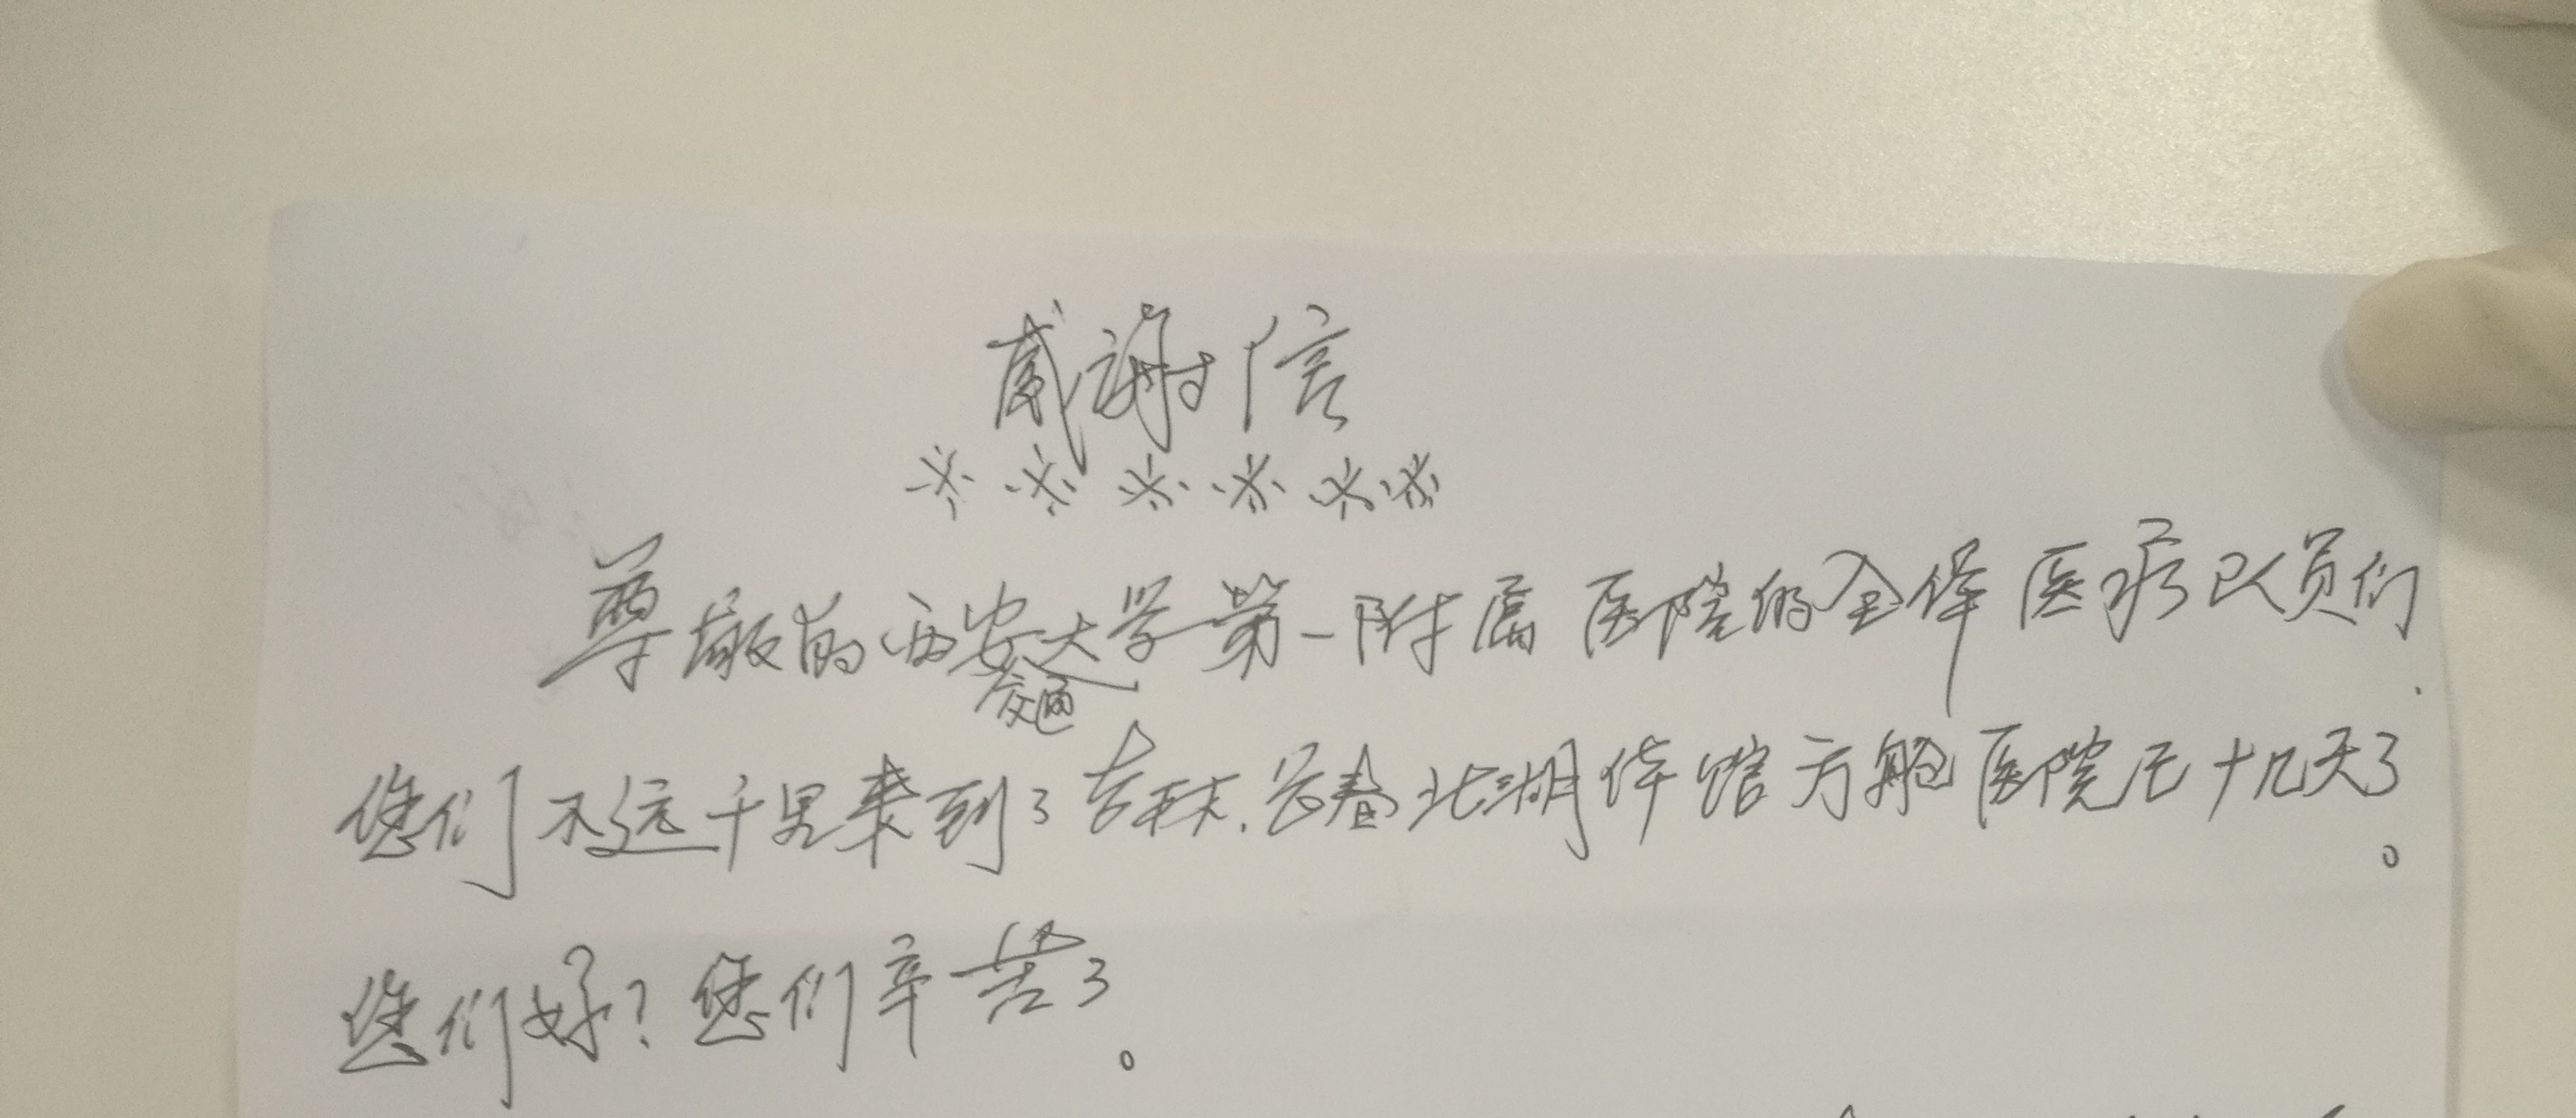 感谢信
※※※※※※
尊敬的西安交通大学第一附属医院的全体医疗队员们
您们不远千里来到了吉林.长春北湖体馆方舱医院已十几天了。
您们好?您们辛苦了。